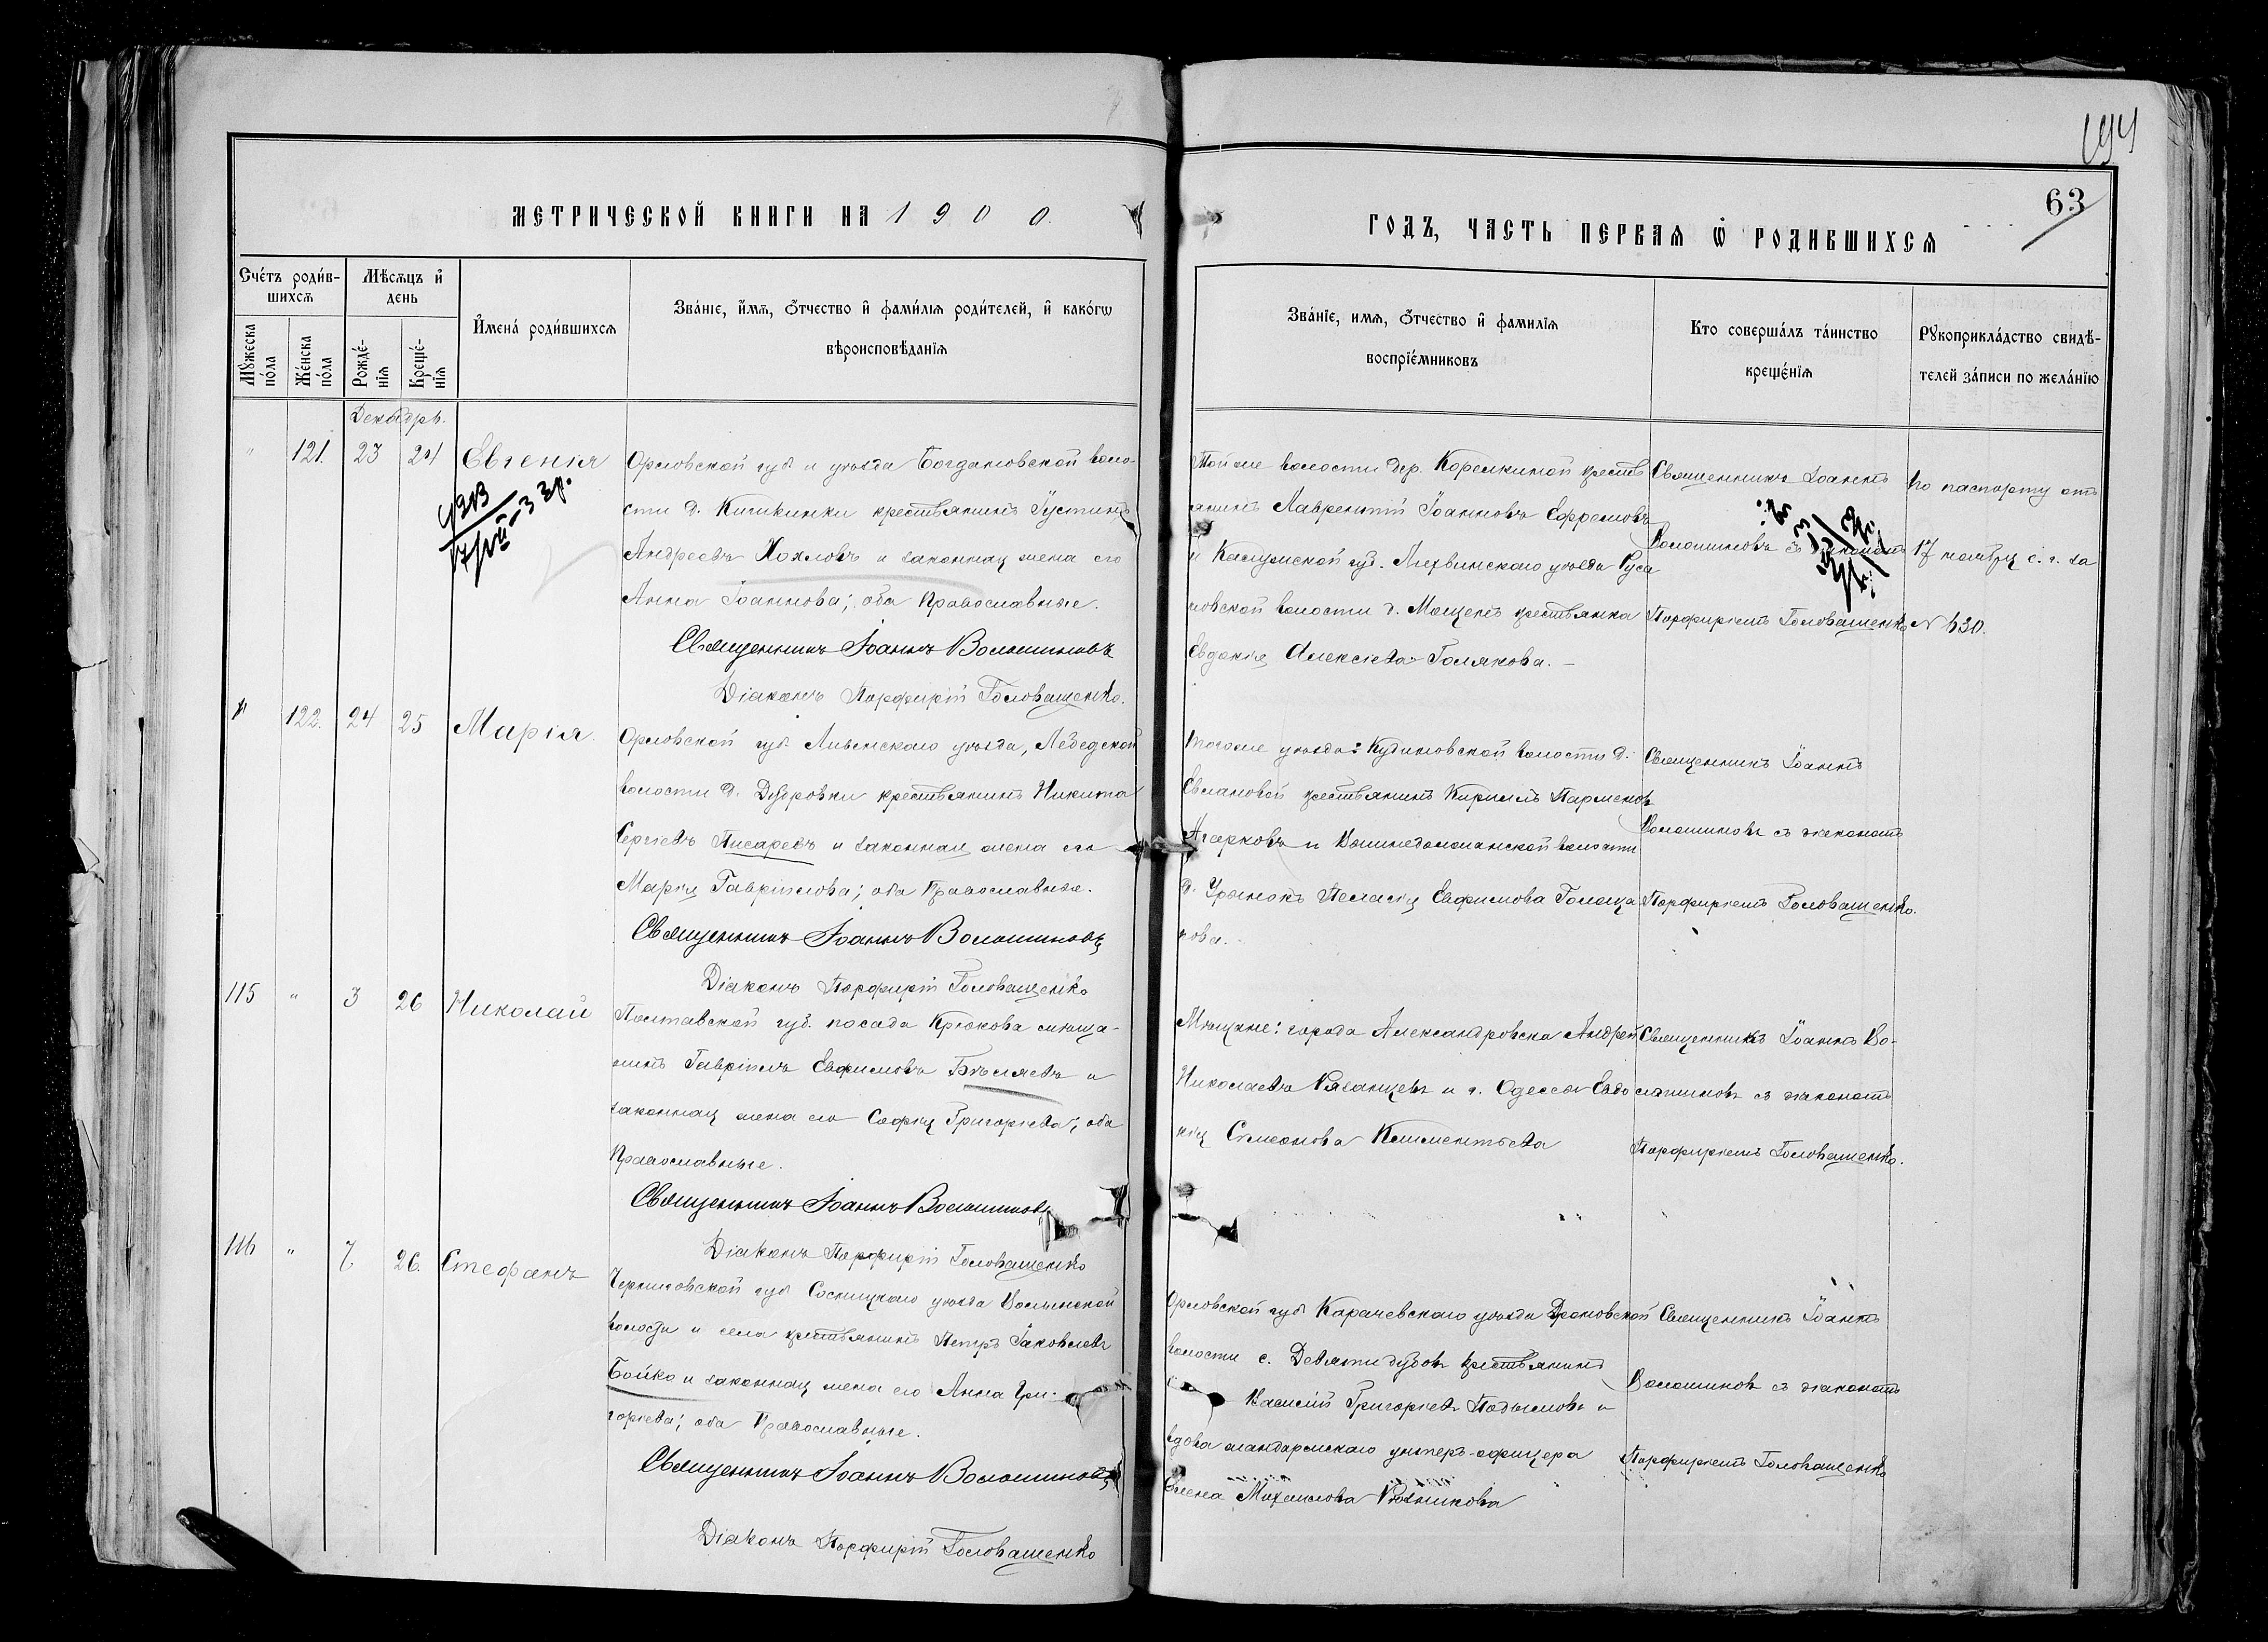 194
63
МЕТРИЧЕСКОЙ КНИГИ НА 1900
ГОДЪ, ЧАСТЬ ПЕРВАЯ Ѡ РОДИВШИХСЯ
Счетъ родив-
шихся
Мужеска пола
Женска пола
Мѣсяцъ и
день
Рожде-
нія
Креще-
нія
Имена родившихся
Званіе, имя, отчество и фамилія родителей, и какогѡ
вѣроисповѣданія
Званіе, имя, отчество и фамилія
воспріемниковъ
Кто совершалъ таинство
крещенія
Рукоприкладство свидѣ-
телей записи по желанію
Декабрь.
" 121. 23 24 Евгенія
1913
Орловской губ и уѣзда Богдановской воло-
сти д. крестьянинъ Іустинъ
Андреевъ Хохловъ и законная жена его
Анна Іоаннова; оба Православные.
Священникъ Іоаннъ Волошиновъ
Діаконъ Порфирій Головащенко.
Той же волости дер. Корелкиной кресть
янинъ Лаврентій Іоанновъ Ефремовъ
и Калужской губ. Лихвинскаго уѣзда Руса
новской волости д. Мощенъ крестьянка
Евдокія Алексіева Голякова.
Священникъ Іоаннъ
Волошиновъ съ діакономъ
Порфиріемъ Головащенко
по паспорту отъ
17 ноября с. г. за
№ 630.
" 122. 24 25 Марія
Орловской губ Ливенскаго уѣзда, Лебедской
волости д. Дубровки крестьянинъ Никита
Сергіевъ Писаревъ и законная жена его
Марія Гавріилова; оба Православные.
Священникъ Іоаннъ Волошиновъ
Діаконъ Порфирій Головащенко
Того же уѣзда: Кудиновской волости д.
Евлановой крестьянинъ Кириллъ Парменовъ
Агарковъ и волости
д. Пелагія Евфимова Голоща
пова.
Священникъ Іоаннъ
Волошиновъ съ діакономъ
Порфиріемъ Головащенко.
115 " 3 26 Николай
Полтавской губ. посада Крюкова мѣща-
нинъ Гавріилъ Евфимовъ Бѣляевъ и
законная жена его Софія Григоріева; оба
Православные.
Священникъ Іоаннъ Волошиновъ
Діаконъ Порфирій Головащенко
Мѣщане: города Александровска Андрей
Николаевъ Рязанцевъ и г. Одессы Евдо
кія Симеонова Климентьева
Священникъ Іоаннъ Во-
лошиновъ съ діакономъ
Порфиріемъ Головащенко.
116 " 7 26. Стефанъ
Черниговской губ Сосницкаго уѣзда Волынской
волости и села крестьянинъ Петръ Іаковлевъ
Бойко и законная жена его Анна Гри-
горіева; оба Православные.
Священникъ Іоаннъ Волошиновъ
Діаконъ Порфирій Головащенко
Орловской губ Карачевскаго уѣзда Дроновской
волости с. Девяти дубовъ крестьянинъ
Василій Григоріевъ и
вдова жандармскаго унтеръ-офицера
Елена Михаилова
Священникъ Іоаннъ
Волошиновъ съ діакономъ
Порфиріемъ Головащенко